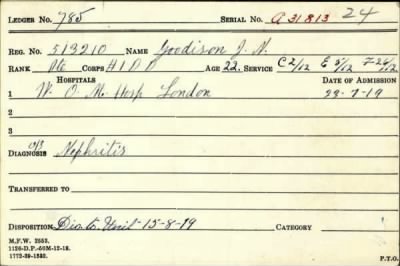 LEDGER No. 785 SERIAL No. A 31813 24
REG. No. 513210 NAME Goodison J. N.
RANK Pte CORPS H1DD AGE 22. SERVICE C 2/12 E 5/12 F 26/12
HOSPITALS DATE OF ADMISSION
1 W. O. M. Hosp London 29-7-19
2
3
DIAGNOSIS Nephritis
TRANSFERRED TO
DISPOSITION Dis to Unit 15-8-19 CATEGORY
M.F.W. 2553.
1126-D.P.-60M-12-18.
1772-39-1382. P.T.O.